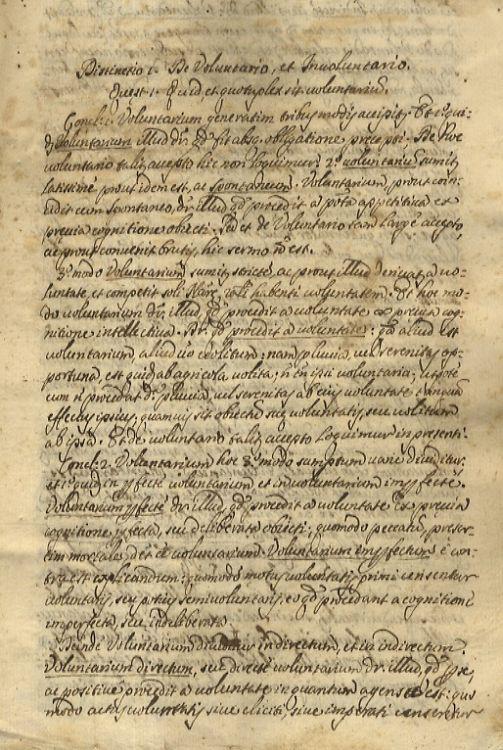 Distinctio 1. De Voluntario, et Involuntario.
Quest. 1. Quid et quotuplex sit voluntarium.
Concl. 1. Voluntarium generatim tribus modis accipitur. Et 1. qui-
d. voluntarium illud dr. qd. fit absq. obligatione precepti. De hoc
voluntario taliter accepto hic non loquimur. 2. voluntarium sumitur
latissime prout idem est, ac spontaneum. Voluntarium, prout coin-
cidit cum spontaneo, dr. illud qd. procedit a pota. appetitiva ex
previa cognitione obiecti. Sed et de Voluntario tam large accepto,
ac prout convenit brutis, hic sermo n. est.
3. modo Voluntarium sumitur stricte, ac prout illud derivatur a vo-
luntate, et competit soli habenti voluntatem. Et hoc mo-
do voluntarium dr. illud, qd. procedit a voluntate ex previa co-
gnitione intellectiva. Dr. qd. procedit a voluntate: qa. aliud est
voluntarium, aliud vo. volitum: nam pluvia, vel serenitas op-
portuna est quid ab agricola volita; n. en. ipsi voluntaria; utpote
cum n. procedat dr. pluvia, vel serenitas ab eius voluntate tanquam
effectus ipsius, quamvis sit obiectum suae voluntatis, seu volitum
ab ipsa. Et de voluntario taliter accepto loquimur in presenti.
Concl. 2. Voluntarium hoc 3. modo sumptum varie dividitur.
et 1. quidem in pfecte voluntarium et in voluntarium impfecte.
Voluntarium pfecte dr. illud, qd. procedit a voluntate ex previa
cognitione pfecta, seu deliberata obiecti; quomodo peccatum, preser-
tim mortale, det ee. voluntarium. Voluntarium impfectum e con-
tra est explicandum: quomodo motus voluntatis primi censentur
voluntarii, seu potius semivoluntarii, eo qd. procedant a cognitione
imperfecta, seu indeliberata.
Deinde Voluntarium dividitur in directum, et in indirectum.
Voluntarium directum, seu directe voluntarium dr. illud, qd. per se,
ac positive procedit a voluntate in quantum agens est: quo
modo actus voluntatis sive eliciti, sive imperati censentur